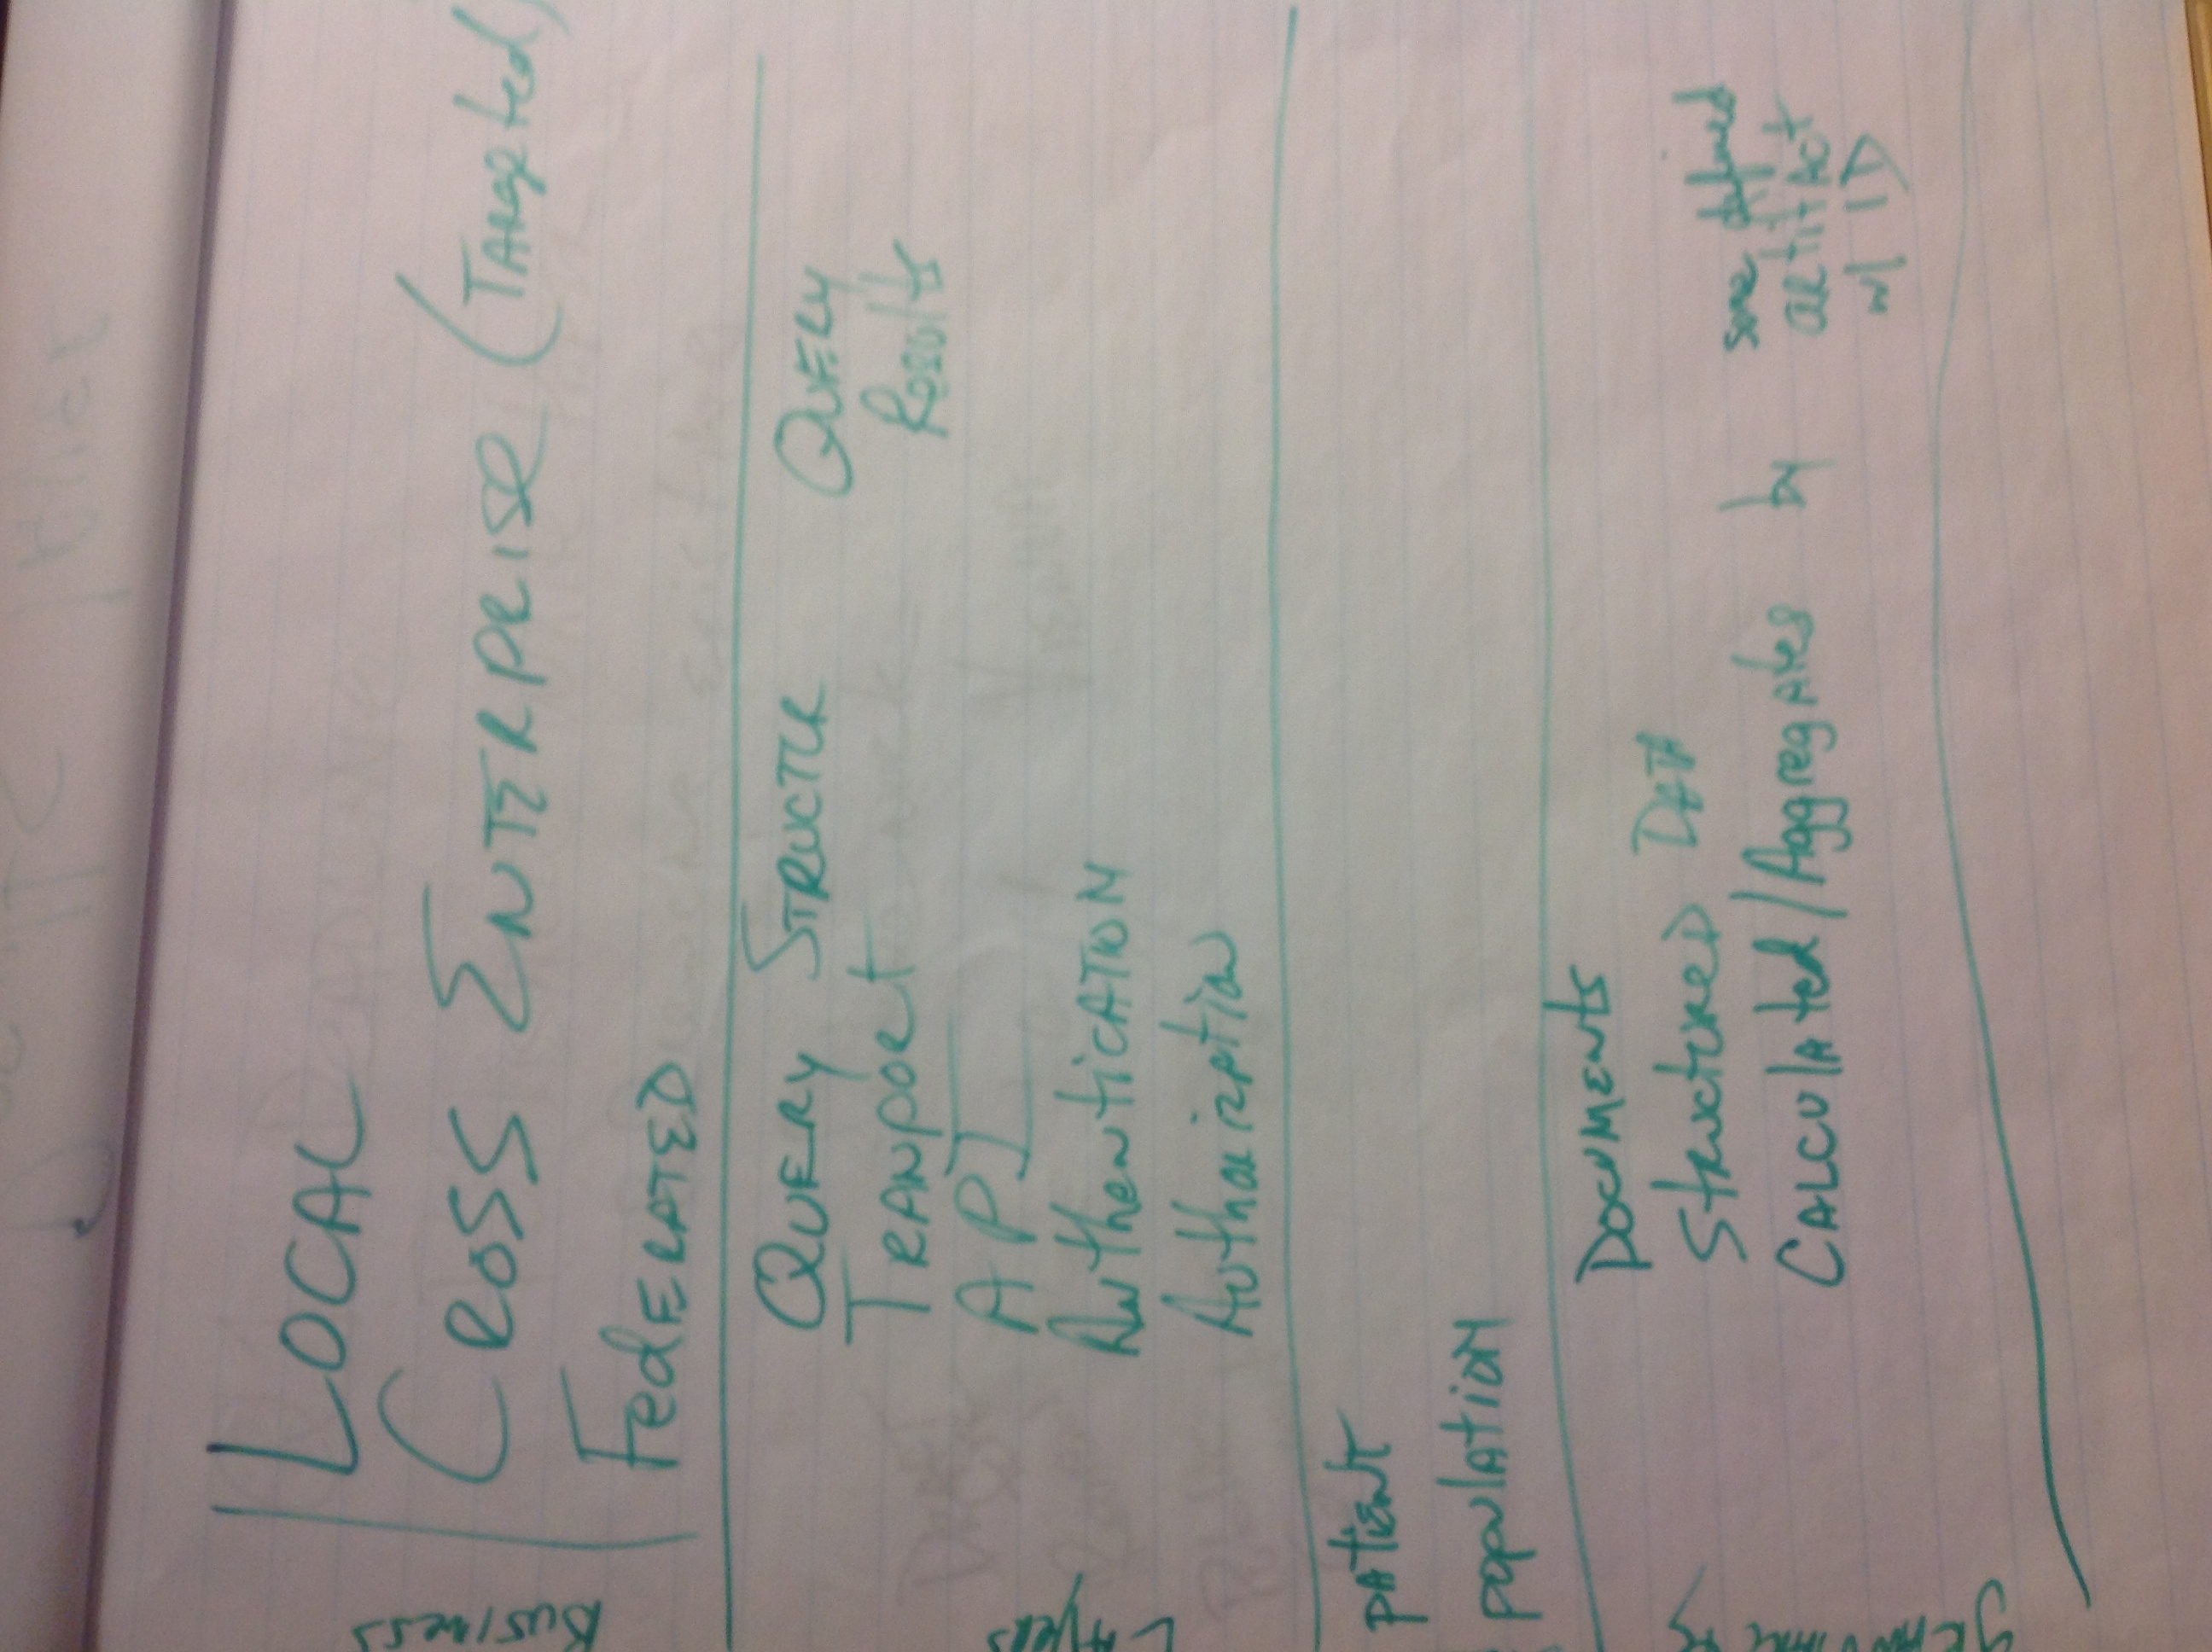 LOCAL
CROSS ENTERPRISE (TARgeted)
FedERATED
BUSINESS
QUERY STRUCTR QUERY
TRANPORT Results
API
AuthenticATION
Authorization
LAyers
PATIENT
populATION
Documents
StructureD DATA
CALCULAted/Aggregates by some defined
artifact
w/ ID